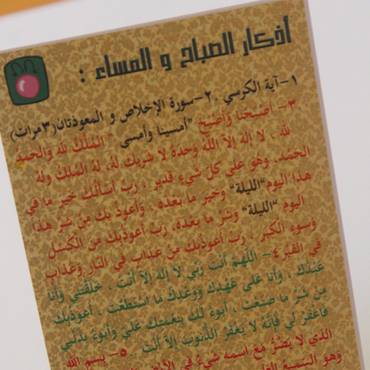 أذكار الصباح و المساء :
١- آية الكرسي ٢- سورة الإخلاص و المعوذتان (٣مرات)
٣- أصبحنا وأصبح "أمسينا وأمسى" الملك لله والحمد
لله ، لا إله إلا الله وحده لا شريك له، له الملك وله
الحمد، وهو على كل شيء قدير ، رب أسألك خير ما في
هذا اليوم"الليلة" وخير ما بعده ، وأعوذ بك من شر هذا
اليوم "الليلة" وشر ما بعده، رب أعوذ بك من الكسل
وسوء الكبر ، رب أعوذ بك من عذاب في النار وعذاب
في القبر ٤- اللهم أنت ربي لا إله إلا أنت ، خلقتني وأنا
عبدك ، وأنا على عهدك ووعدك ما استطعت ، أعوذ بك
من شر ما صنعت ، أبوء لك بنعمتك علي وأبوء بذنبي
فاغفر لي فإنه لا يغفر الذنوب إلا أنت ٥- بسم الله
الذي لا يضر مع اسمه شيء في
وهو السميع